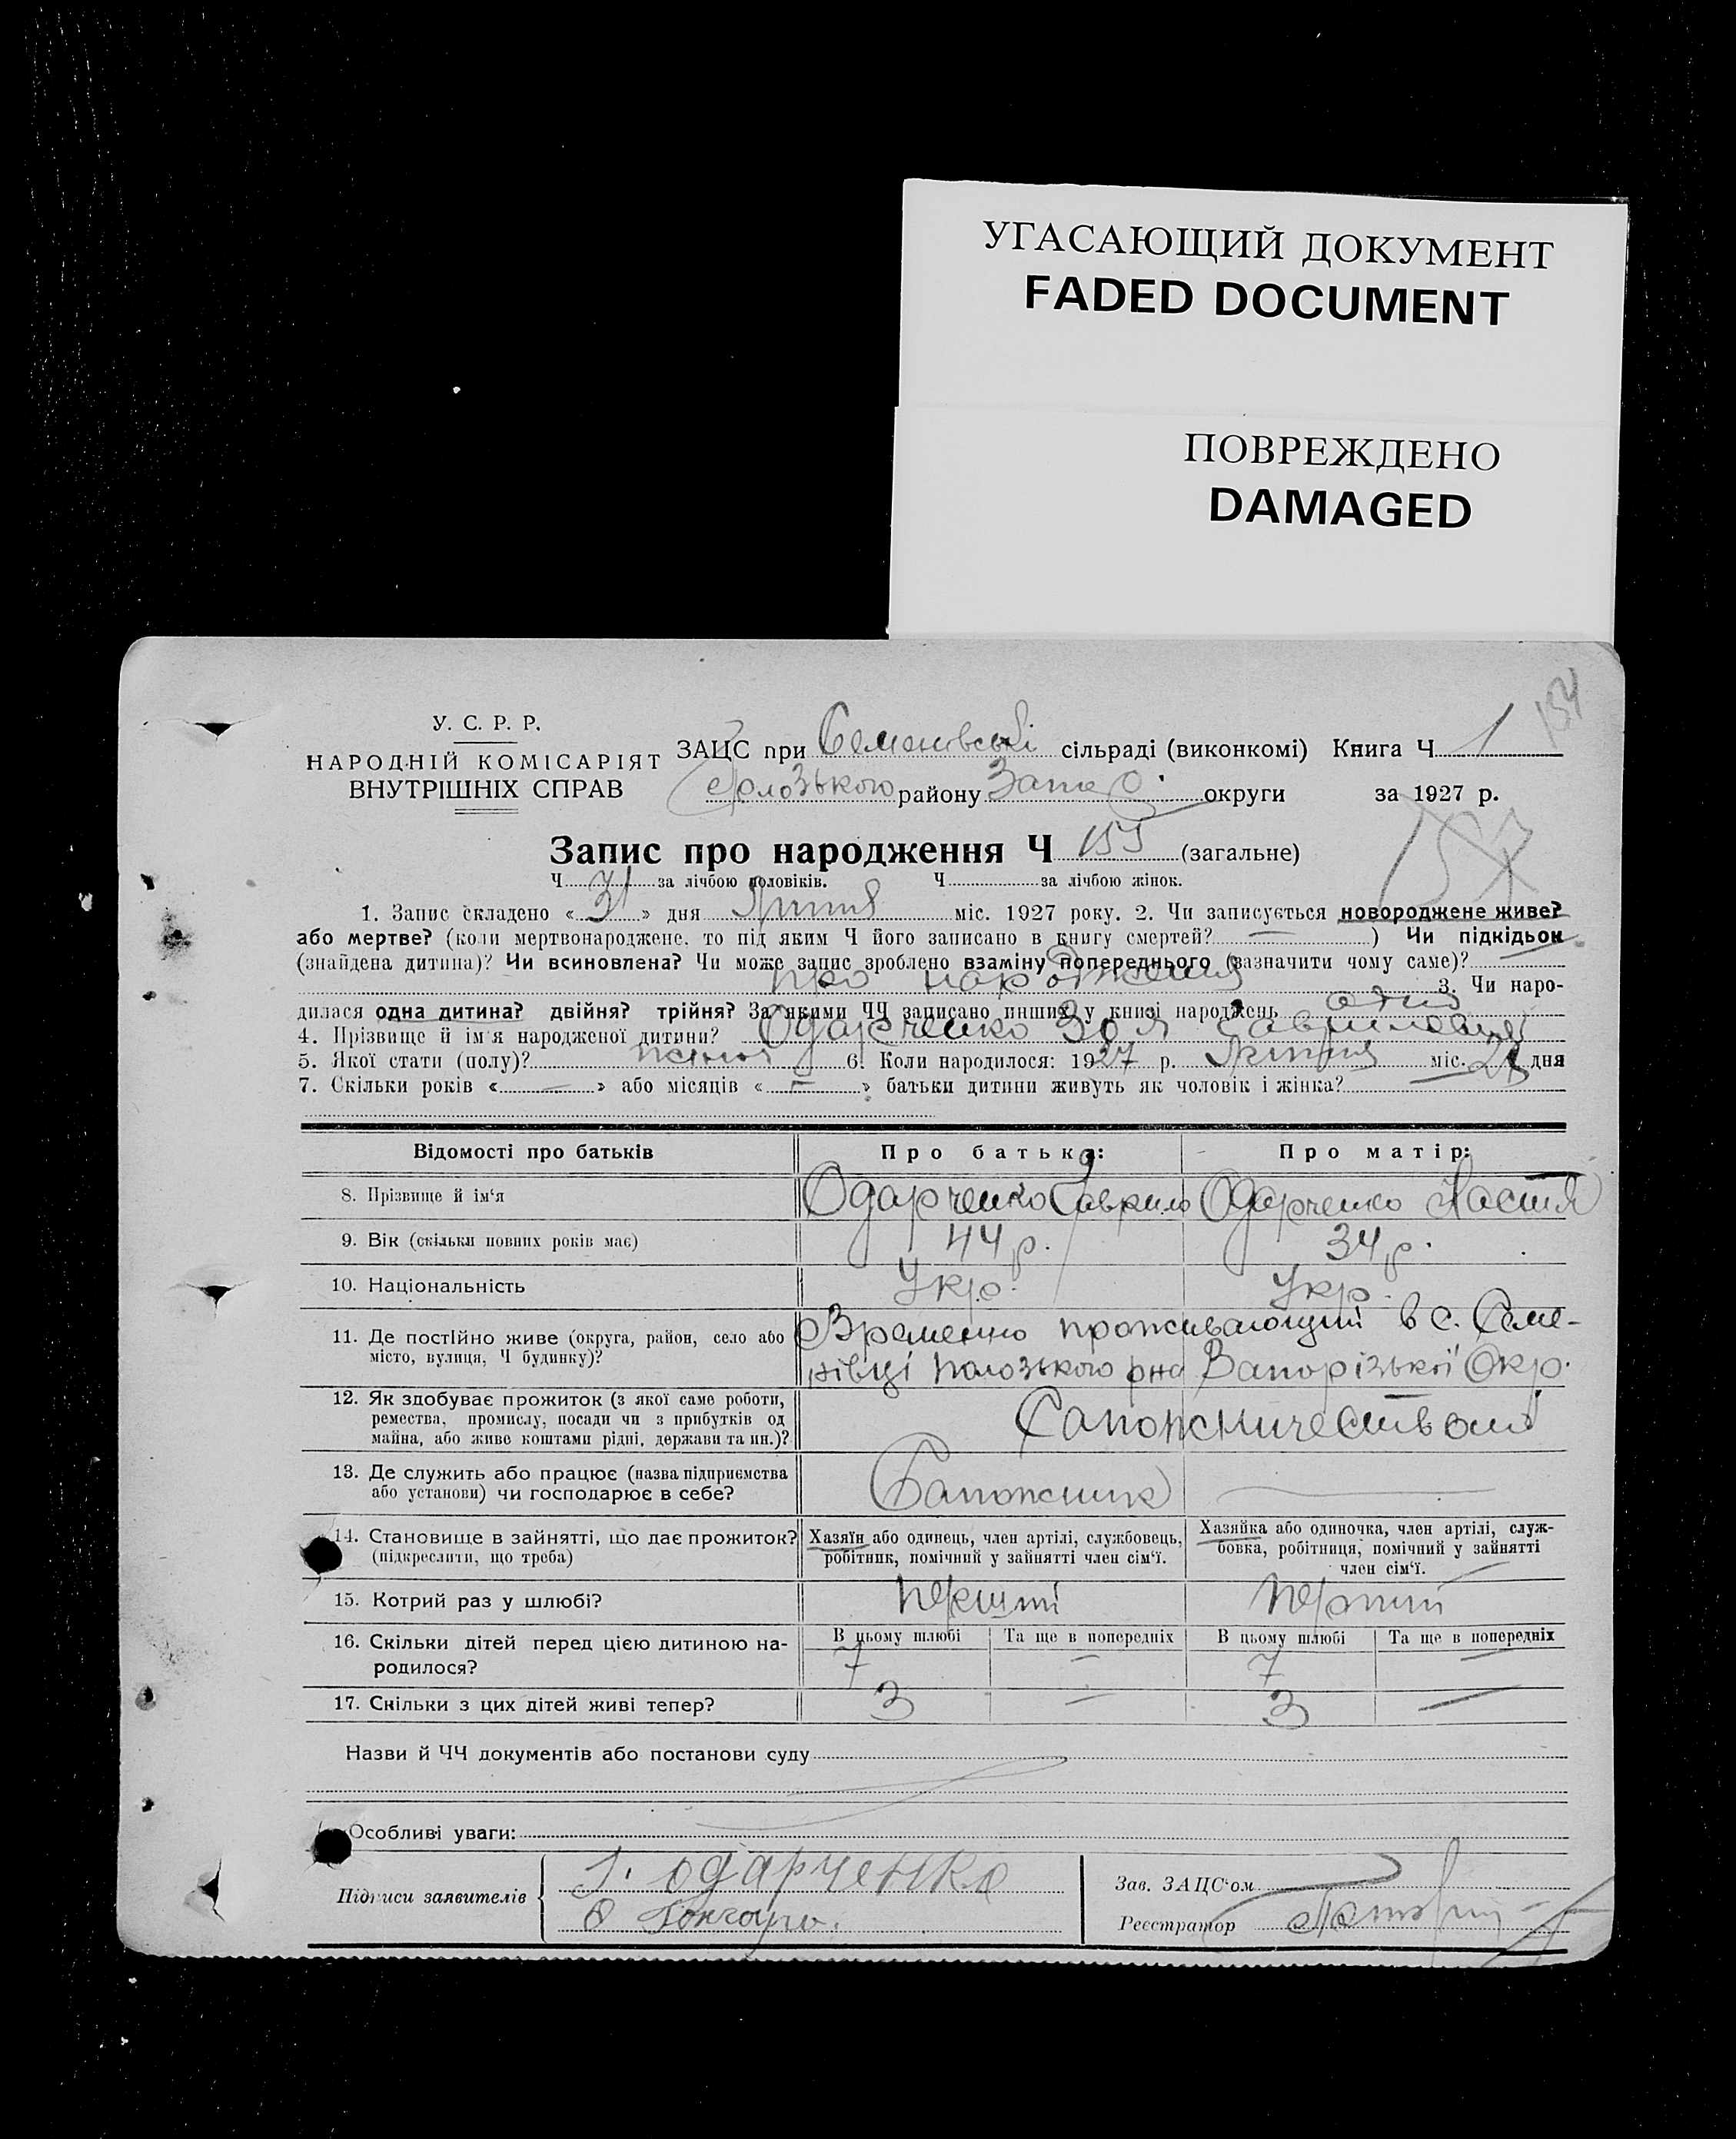 УГАСАЮЩИЙ ДОКУМЕНТ
FADED DOCUMENT
ПОВРЕЖДЕНО
DAMAGED
134
У. С. Р. Р.
НАРОДНІЙ КОМІСАРІЯТ
ВНУТРІШНІХ СПРАВ
ЗАЦС при Семенівські сільраді (виконкомі) Книга Ч 1
району Запо округи за 1927 р.
Запис про народження Ч 155 (загальне)
157
Ч за лічбою чоловіків. Ч за лічбою жінок.
1. Запис складено « 31 » дня Липня міс. 1927 року. 2. Чи записується новороджене живе?
або мертве? (коли мертвонароджене, то під яким Ч його записано в книгу смертей? — ) Чи підкідьок
(знайдена дитина)? Чи всиновлена? Чи може запис зроблено взаміну попереднього (зазначити чому саме)?
про народження 3. Чи наро-
дилася одна дитина? двійня? трійня? За якими ЧЧ записано инших у книзі народжень одна
4. Прізвище й ім'я народженої дитини? Одарченко Зоя Гавриловна
5. Якої стати (полу)? 6. Коли народилося: 1927 р. міс. дня
7. Скільки років « — » або місяців « — » батьки дитини живуть як чоловік і жінка?
Відомості про батьків Про батька: Про матір:
8. Прізвище й ім'я Одарченко Гаврило Одарченко Настя
9. Вік (скільки повних років має) 44 р. 34 р.
10. Національність Укр. Укр.
11. Де постійно живе (округа, район, село або місто, вулиця, Ч будинку)?
Временно проживающий в с. Семе-
нівці Полозького рна Запорізької Окр.
12. Як здобуває прожиток (з якої саме роботи,
ремества, промислу, посади чи з прибутків од
майна, або живе коштами рідні, держави та ин.)?
Сапожничеством
13. Де служить або працює (назва підприємства
або установи) чи господарює в себе?
Сапожник —
14. Становище в зайнятті, що дає прожиток?
(підкреслити, що треба)
Хазяїн або одинець, член артілі, службовець,
робітник, помічний у зайнятті член сім'ї.
Хазяйка або одиночка, член артілі, служ-
бовка, робітниця, помічний у зайнятті
член сім'ї.
15. Котрий раз у шлюбі? перший перший
16. Скільки дітей перед цією дитиною на-
родилося?
В цьому шлюбі Та ще в попередніх В цьому шлюбі Та ще в попередніх
7 — 7 —
17. Скільки з цих дітей живі тепер? 3 — 3 —
Назви й ЧЧ документів або постанови суду
Особливі уваги:
Підписи заявителів
Г. Одарченко
Зав. ЗАЦС'ом
Реєстратор